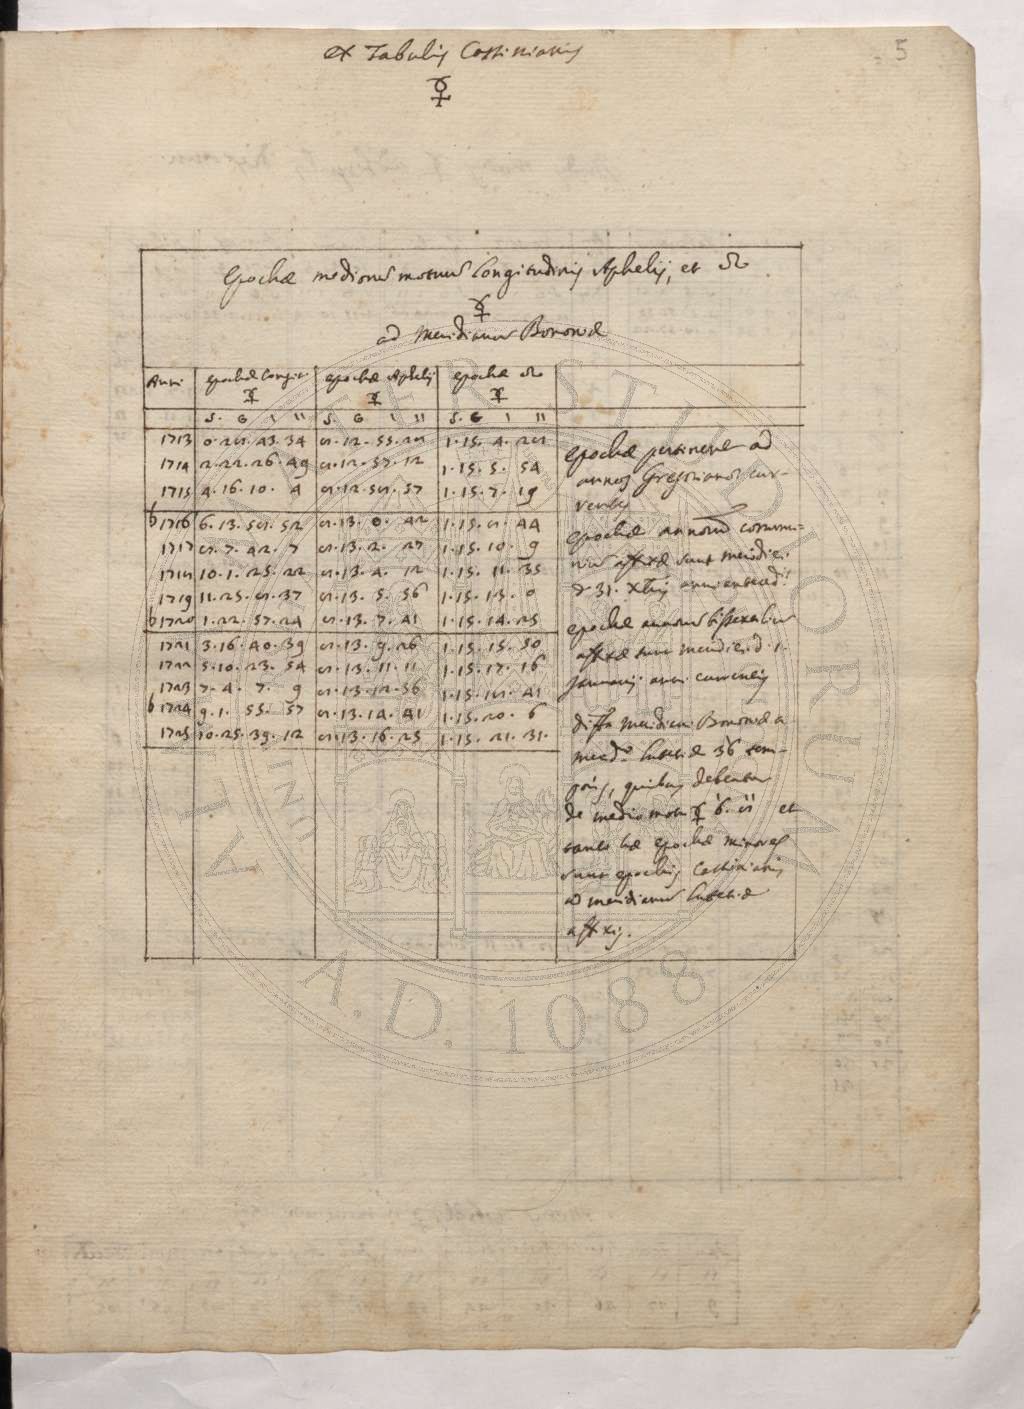 5
ex Tabulis Cassinianis
☿
Epochæ mediorum motuum Longitudinis Aphelij, et ☊
☿
ad Meridianum Bononiæ
Anni | epochæ Longit. ☿ | epochæ Aphelij ☿ | epochæ ☊ ☿
S. G ' '' | S. G ' '' | S. G ' ''
1713 | 0.28.43.34 | 8.12.55.28 | 1.15.4.28
1714 | 2.22.26.49 | 8.12.57.12 | 1.15.5.54
1715 | 4.16.10.4 | 8.12.58.57 | 1.15.7.19
b 1716 | 6.13.58.52 | 8.13.0.42 | 1.15.8.44
1717 | 8.7.42.7 | 8.13.2.27 | 1.15.10.9
1718 | 10.1.25.22 | 8.13.4.12 | 1.15.11.35
1719 | 11.25.8.37 | 8.13.5.56 | 1.15.13.0
b 1720 | 1.22.57.24 | 8.13.7.41 | 1.15.14.25
1721 | 3.16.40.39 | 8.13.9.26 | 1.15.15.50
1722 | 5.10.23.54 | 8.13.11.11 | 1.15.17.16
1723 | 7.4.7.9 | 8.13.12.56 | 1.15.18.41
b 1724 | 9.1.55.57 | 8.13.14.41 | 1.15.20.6
1725 | 10.25.39.12 | 8.13.16.25 | 1.15.21.31.
epochæ pertinent ad
annos Gregorianos cur-
rentes
epochæ annorum commu-
nium affixæ sunt meridiei
d 31. Xbris anni anteced.
epochæ annorum bissextilium
affixæ sunt meridiei d. 1.
Januarij anni currentis
diffa Meridian. Bononiæ a
merid.o Lutetiæ 36' tem-
poris, quibus debentur
de medio motu ☿ 6'. 8'' et
tanto hæ epochæ minores
sunt epochis Cassinianis
ad meridianum Lutetiæ
affixis.